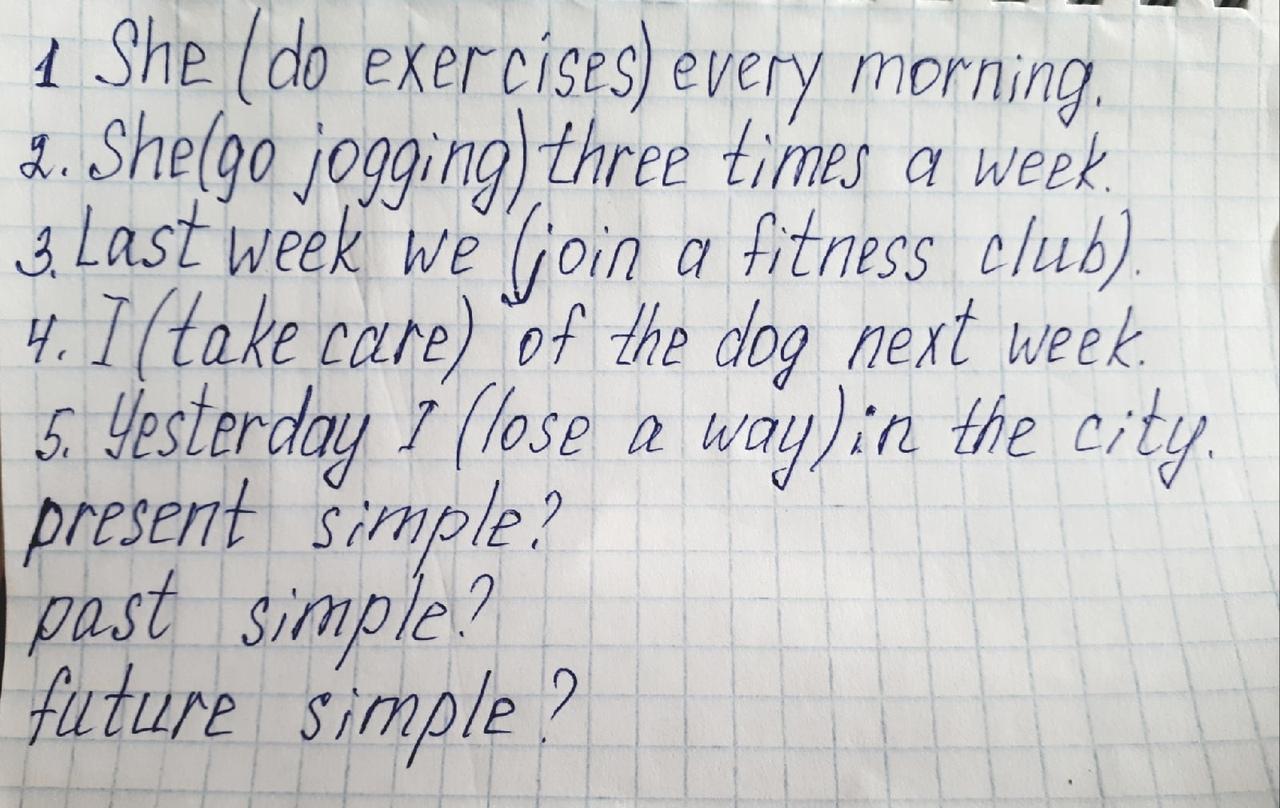 1 She (do exercises) every morning.
2. She(go jogging) three times a week.
3. Last week we (join a fitness club).
4. I (take care) of the dog next week.
5. Yesterday I (lose a way) in the city.
present simple?
past simple?
future simple?